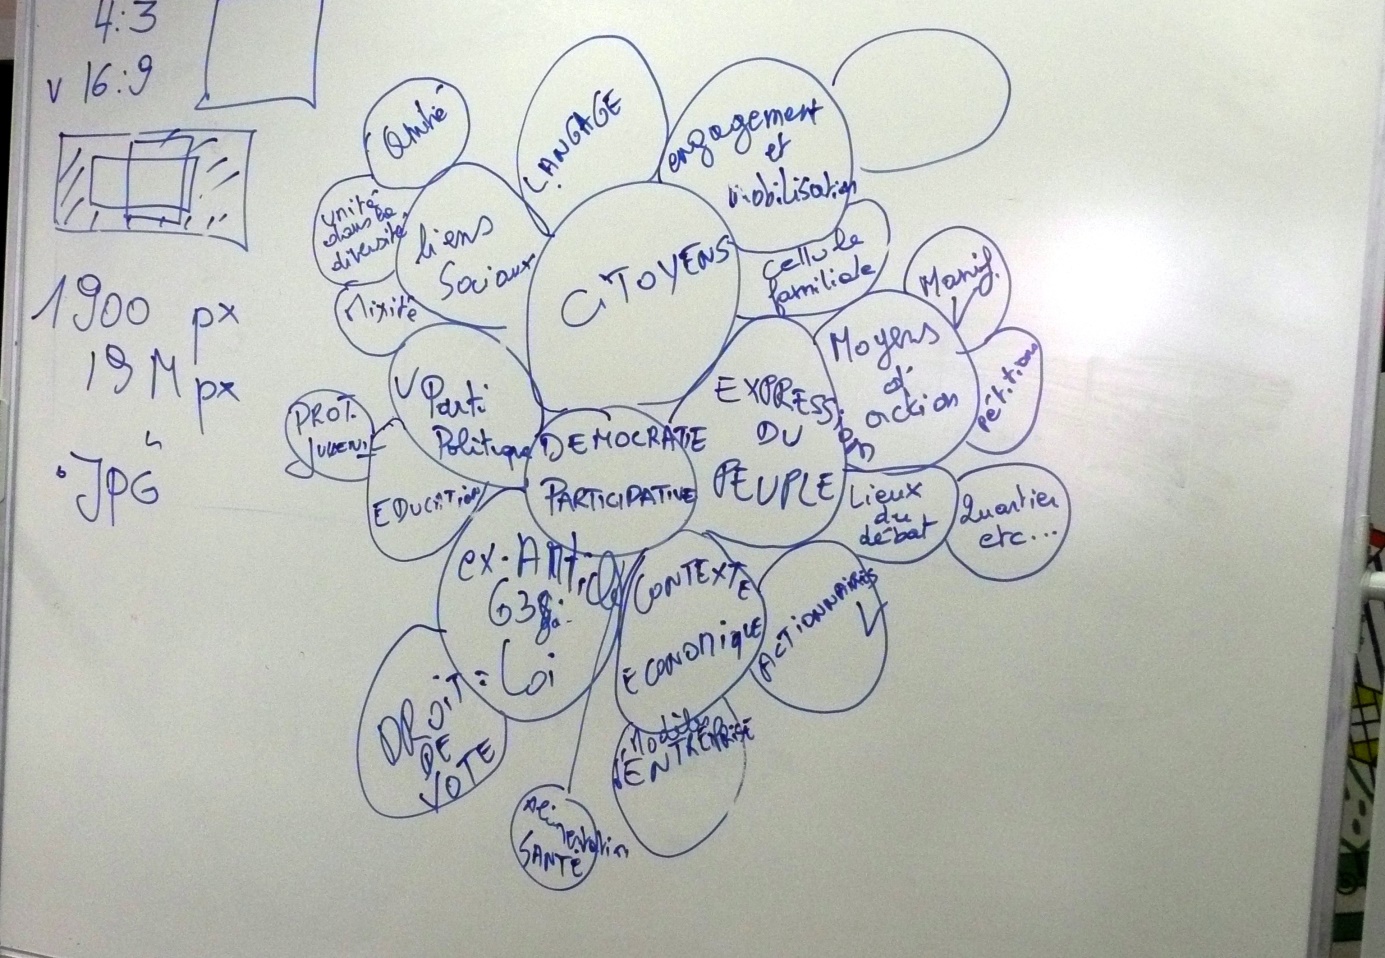 4:3
v 16:9
1900 px
19 M px
JPG
Amitié
LANGAGE
engagement
et
mobilisation
unité
dans la
diversité
liens
Sociaux
Mixité
CITOYENS
cellule
familiale
Manif.
Moyens
d'
action
pétitions
Parti
Politique
PROT.
EDUCATION
DEMOCRATIE
PARTICIPATIVE
EXPRESSION
DU
PEUPLE
Lieux
du
débat
Quartier
etc...
ex. Article
Loi
CONTEXTE
ECONOMIQUE
ACTIONNAIRES
DROIT
DE
VOTE
Modèle
ENTREPRISE
SANTÉ